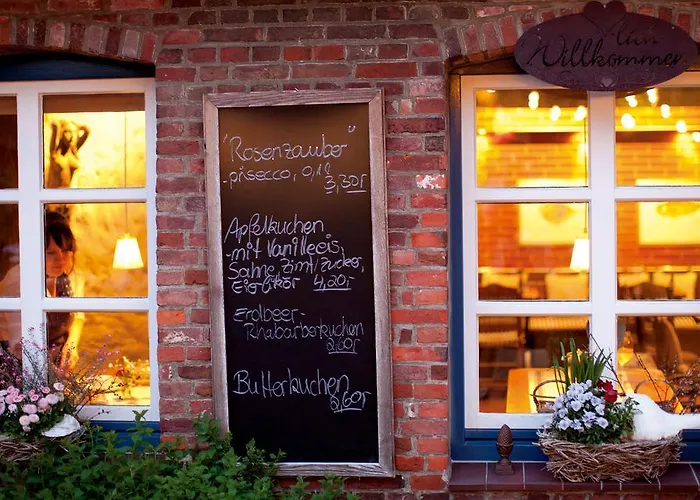 Willkommen
"Rosenzauber"
-prisecco, 0,1l
3,30
Apfelkuchen
-mit Vanilleeis,
Sahne, Zimt/Zucker,
Eierlikör 4,20
Erdbeer-
Rhabarberkuchen
2,60
Butterkuchen
2,60